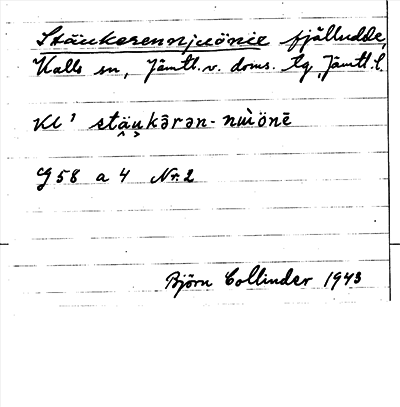 Stäukerennjuönie fjälludde,
Kalls sn, Jämtl. v. doms. tg, Jämtl. l.
Kl¹ stäu̯kārən-nùi̯önē
G 58 a 4 Nr. 2
Björn Collinder 1943